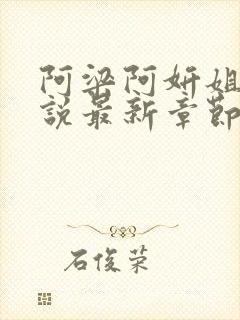 阿梁阿妍姐
說最新章節
石俊荣